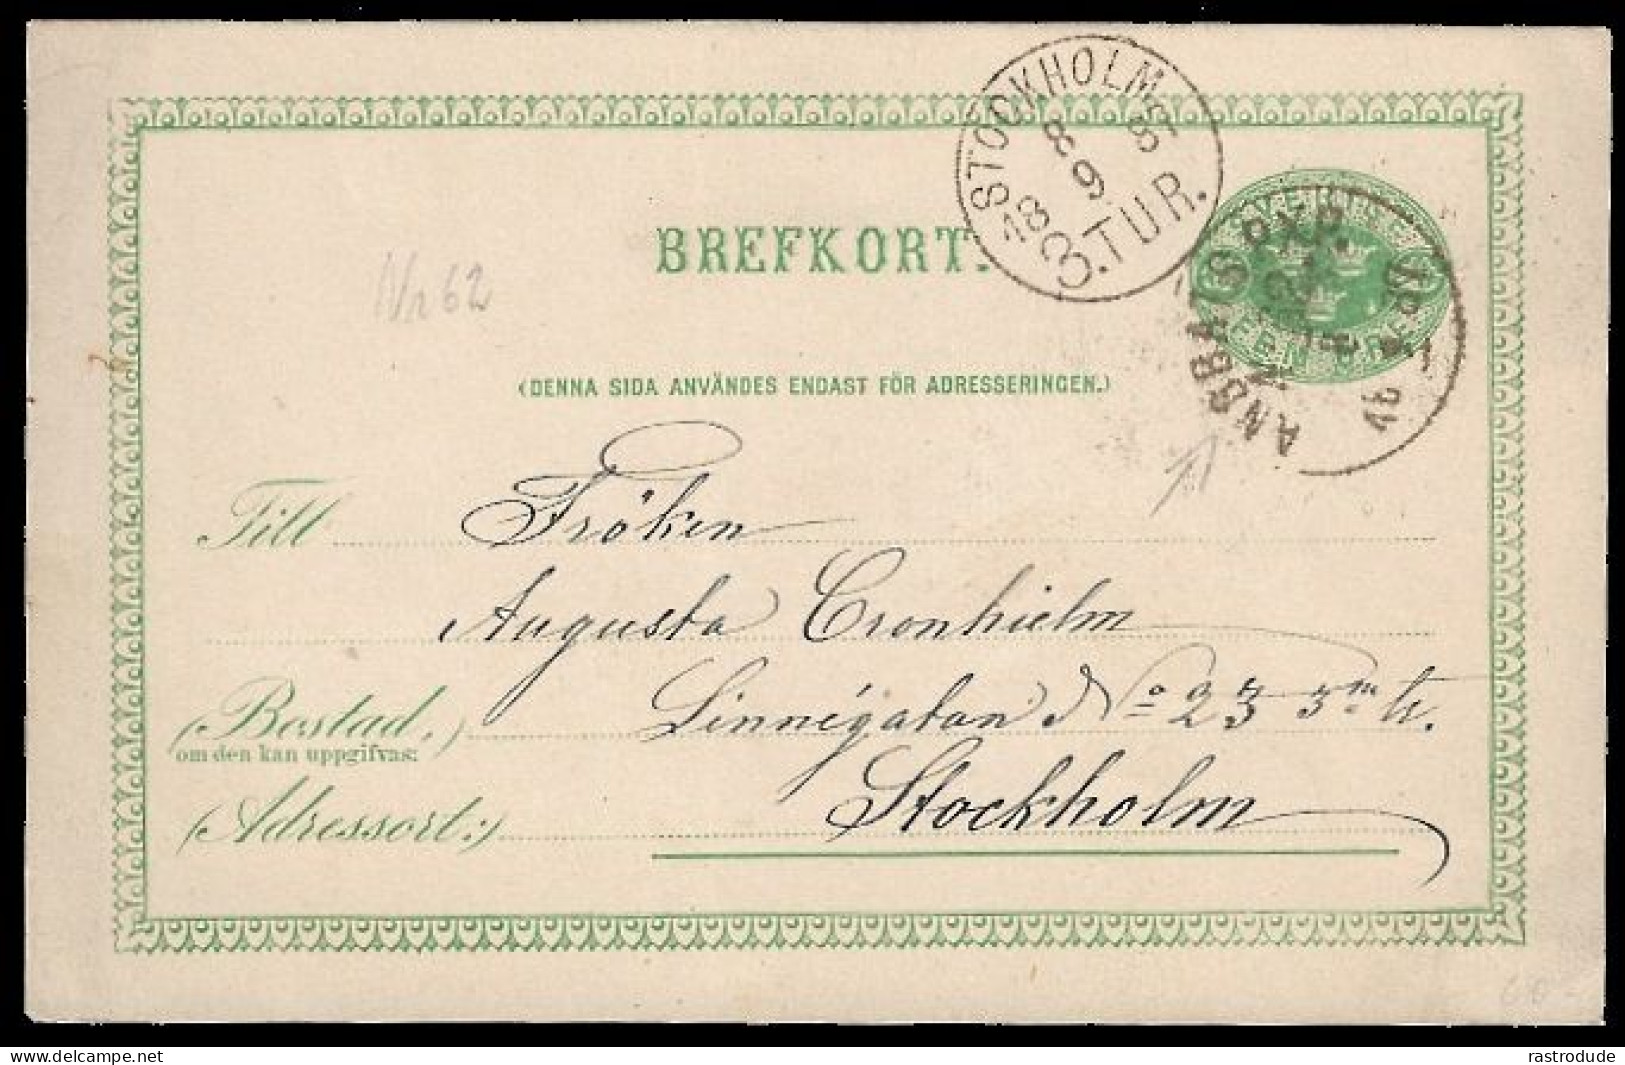 STOCKHOLM
8 87
9
18
3.TUR.
BREFKORT.
Nr 62
ÅNGBÅTS PXP.
FEM ÖRE
(DENNA SIDA ANVÄNDES ENDAST FÖR ADRESSERINGEN.)
Till Fröken
Augusta Cronhielm
(Bostad,) Linnégatan No 23 3m tr.
om den kan uppgifvas:
(Adressort:) Stockholm
delcampe.net
rastrodude